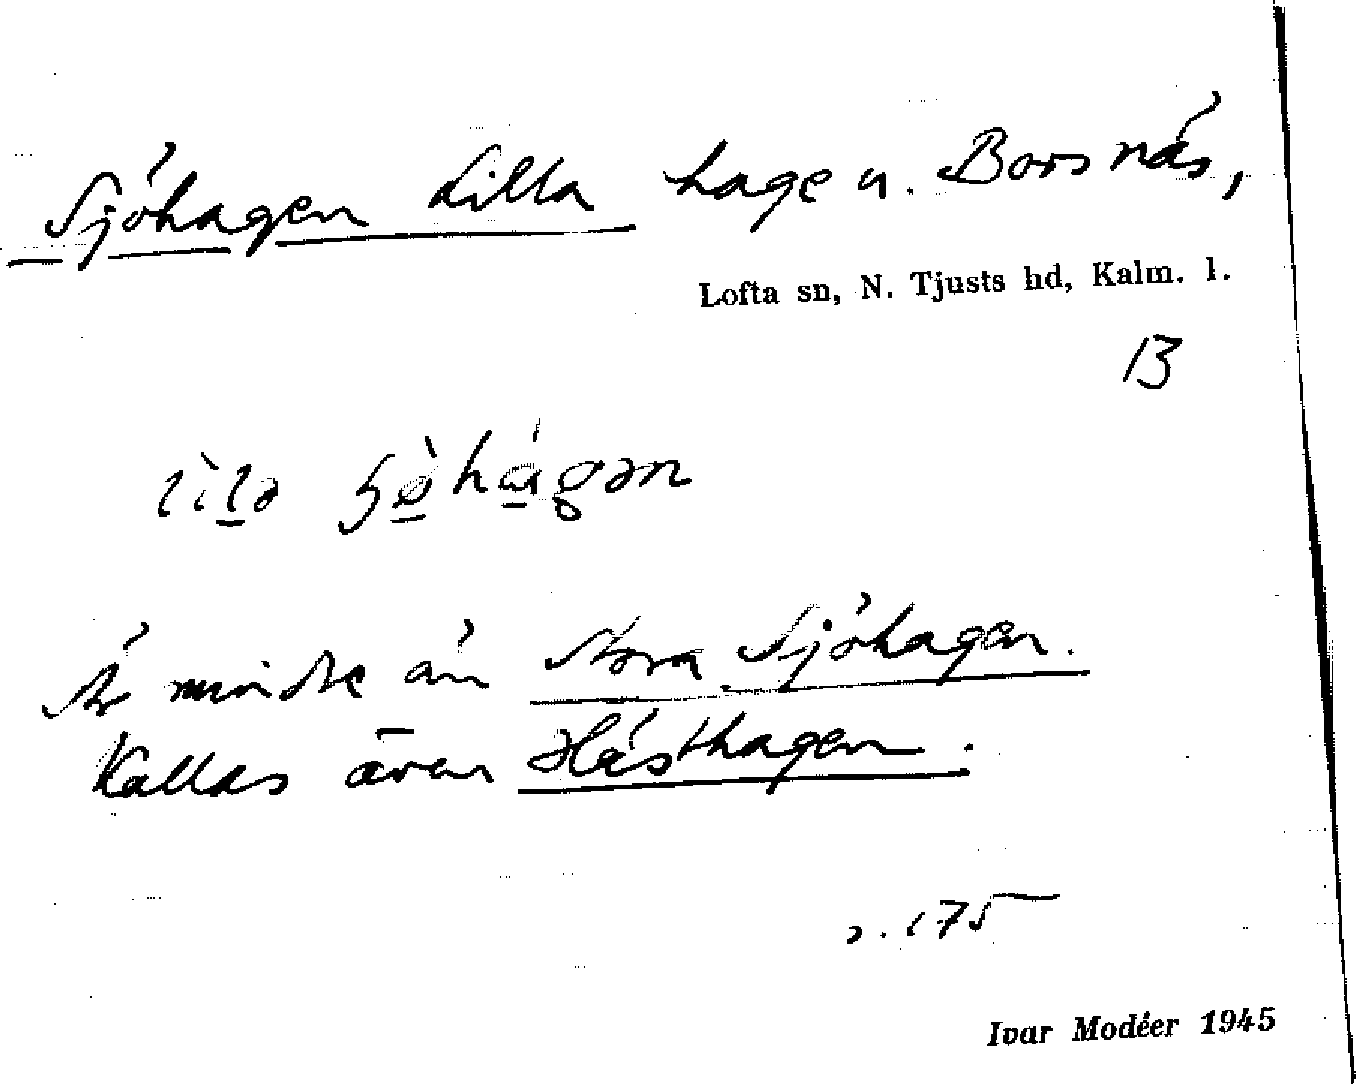 Sjöhagen Lilla hage u. Borsnäs,
Lofta sn, N. Tjusts hd, Kalm. l.
B
Är mindre än Stora Sjöhagen.
Kallas även Hästhagen.
s. 175
Ivar Modéer 1945